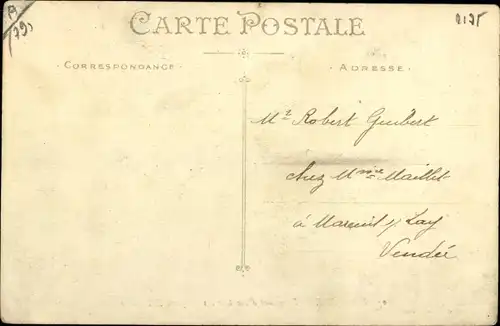 CARTE POSTALE
CORRESPONDANCE
ADRESSE
Mr Robert Guibert
chez Mme Maillet
à Mareuil s/ Lay
Vendée